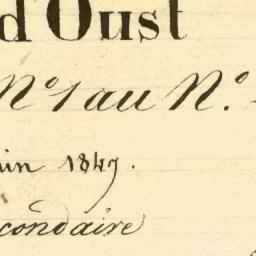 d'Oust
N.º 1 au N.º
uin 1847.
condaire